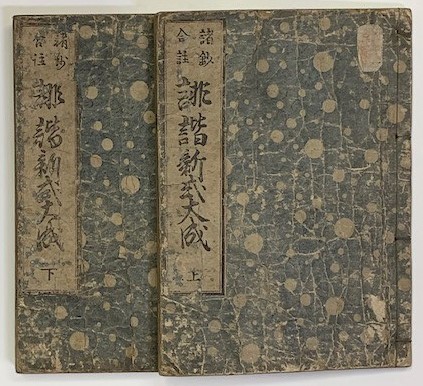 諸鈔
合註
誹諧新式大成
上
諸鈔
合註
誹諧新式大成
下